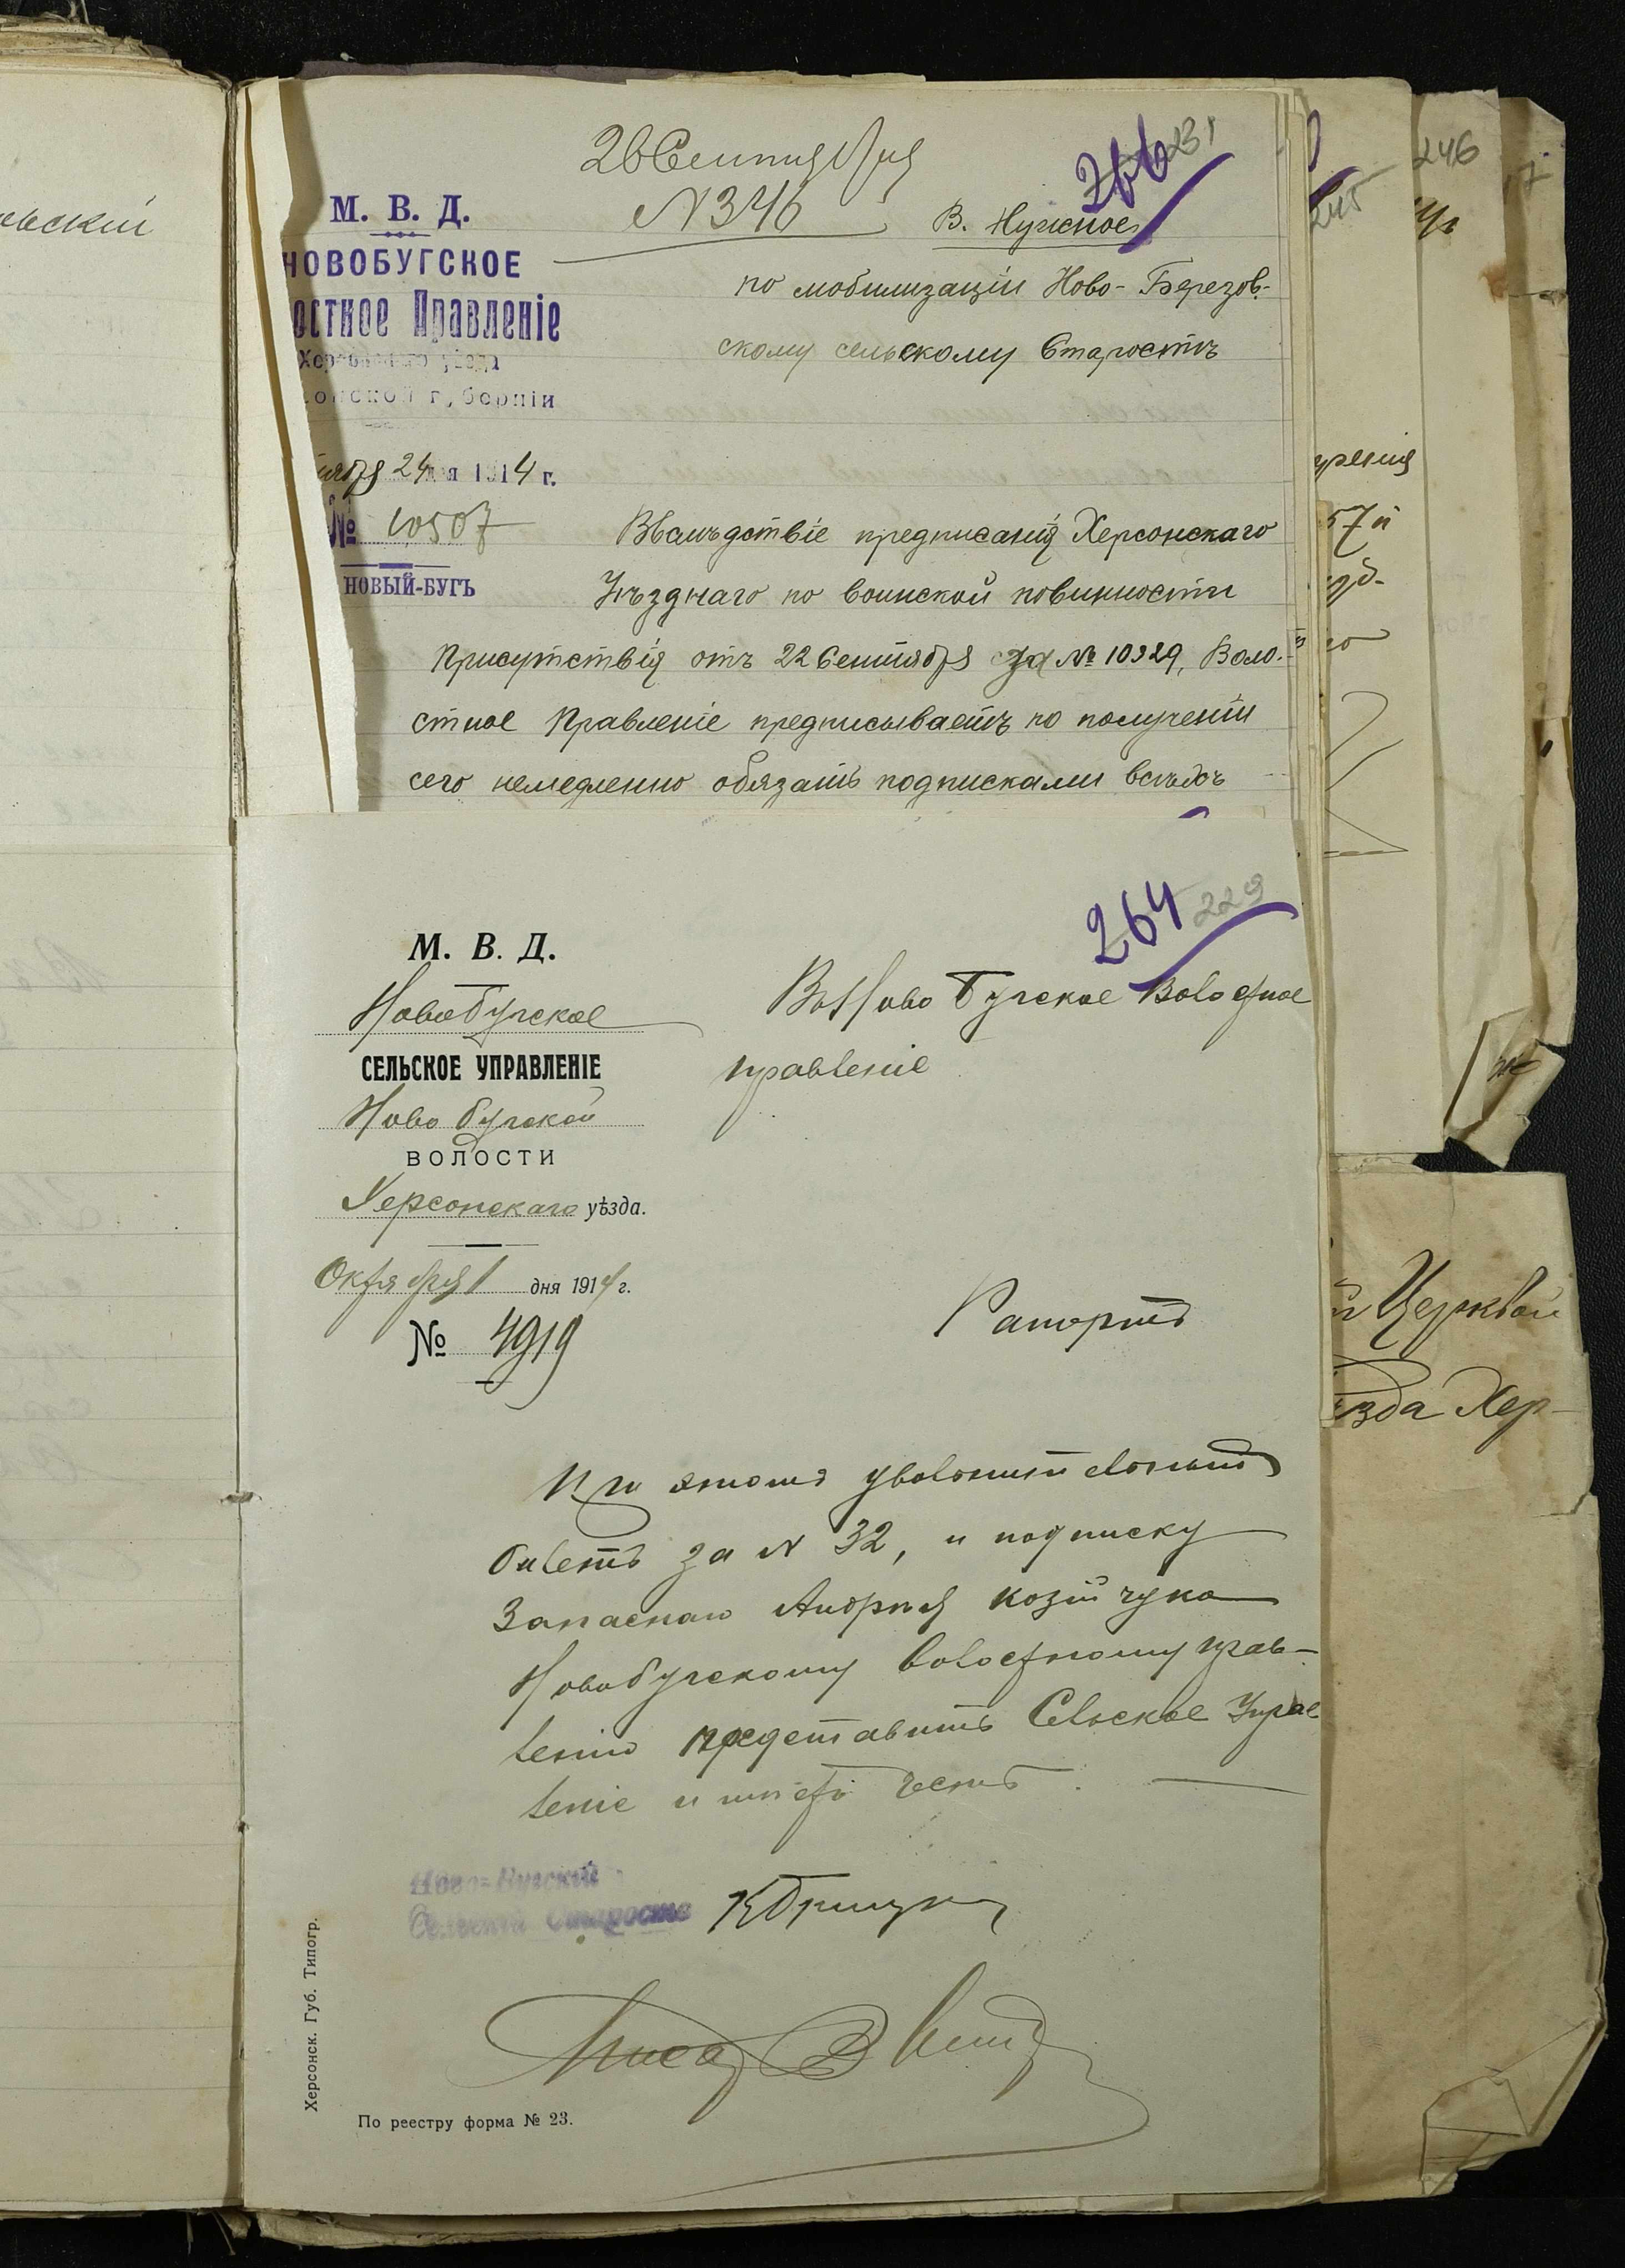 евскій
26 Сентября
№ 346
266
231
М. В. Д.
НОВОБУГСКОЕ
остное Правленіе
Херсонскаго уѣзда
сонской губерніи
24 дня 1914 г.
№ 10507
НОВЫЙ-БУГЪ
В. Нужное
по мобилизаціи Ново-Березов-
скому сельскому Старостѣ
Вслѣдствіе предписанія Херсонскаго
Уѣзднаго по воинской повинности
Присутствія отъ 22 Сентября за № 10329, Воло-
стное Правленіе предписываетъ по полученіи
сего немедленно обязать подписками всѣхъ
264
229
М. В. Д.
Новобугское
СЕЛЬСКОЕ УПРАВЛЕНІЕ
Ново бугской
ВОЛОСТИ
Херсонскаго уѣзда.
Октября 1 дня 1914 г.
№ 4919
Въ Ново Бугское Волостное
правленіе
Рапортъ
При этомъ увольнительный
билетъ за № 32, и подписку
Запаснаго Андрея Козійчука
Новобугскому волостному прав-
ленію представить Сельское Управ
леніе имѣетъ честь.
Ново-Бугский
Сельский Староста
Херсонск. Губ. Типогр.
По реестру форма № 23.
245
246
7
57й
й Церквой
ѣзда Хер-